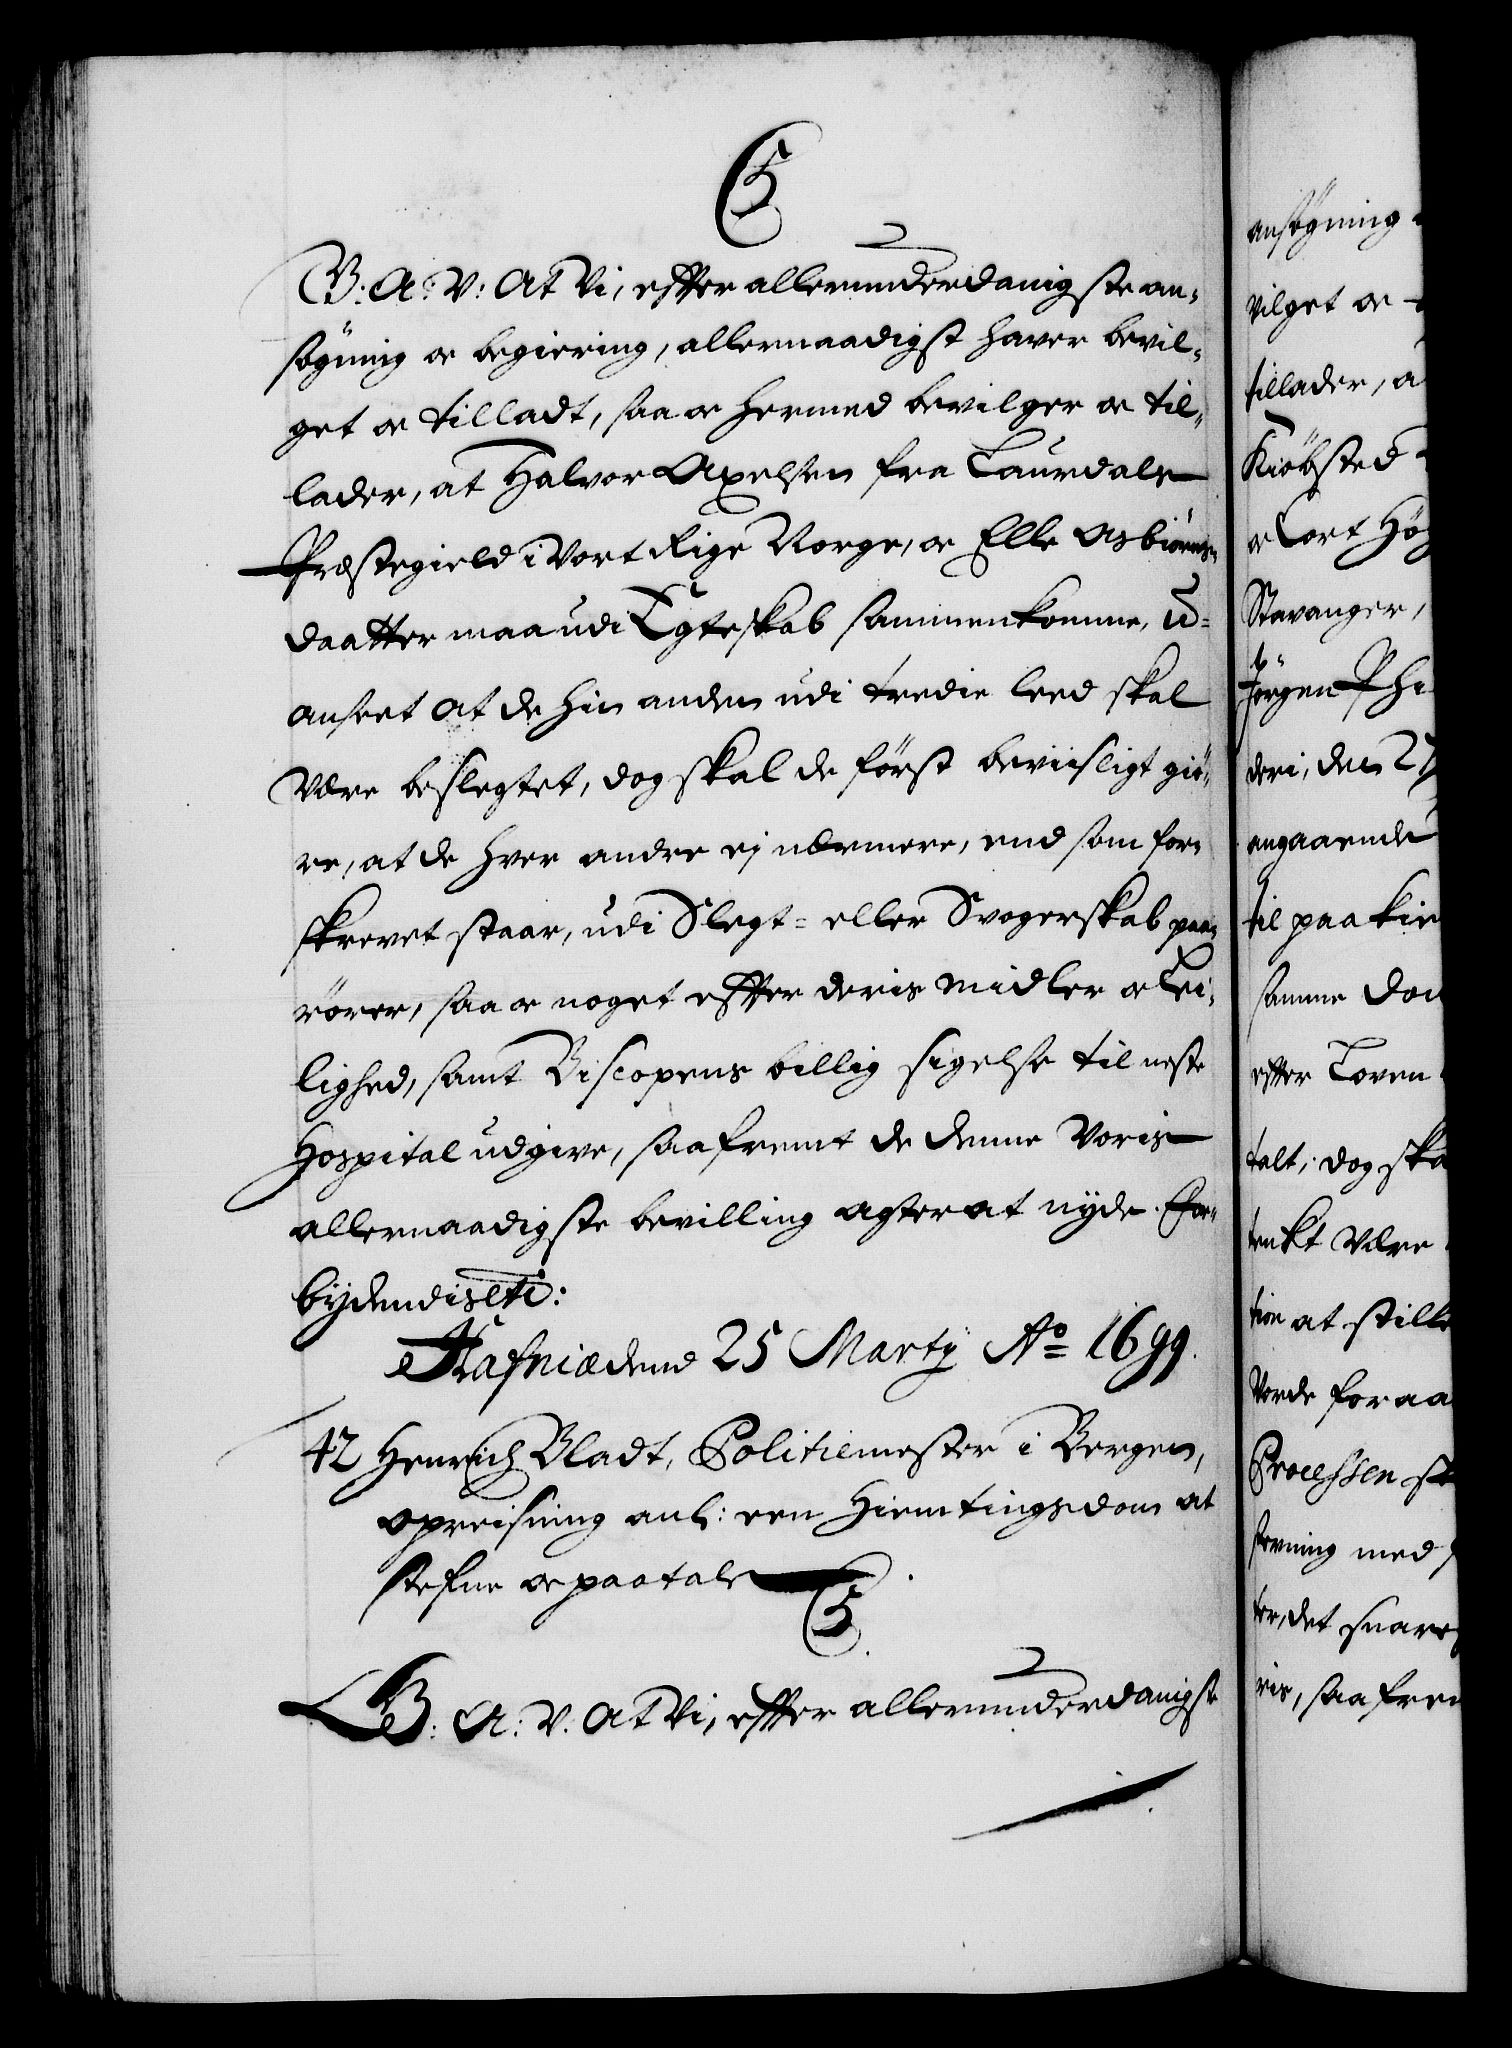 C5
G: A: V: At Vi, effter allerunderdanigste an-
søgning oc begiering, allernaadigst haver bevil-
get oc tilladt, saa oc hermed bevilger oc til-
lader, at Halvor Axelsen fra Laurdals
Præstegield i Vort Rige Norge, oc Elle Asbiørns-
daatter maa udi Egteskab sammenkomme, U-
anseet at de hin anden udi tredie leed skal
være beslegtet, dog skal de først beviisligt giö-
re, at de hver andre ej nærmere, end som for-
skrevet staar, udi Slegt- eller Svogerskab paa-
rører, saa oc noget effter deris midler oc Lei-
lighed, samt Biscopens billig sigelse til neste
Hospital udgive, saafremt de denne Voris
allernaadigste bevilling agter at nyde. For-
bydendis etc:
Hafniæ dend 25 Martij Ao 1699.
42 Henrich Bladt, Politiemester i Bergen,
opreisning anl: een Hiemtingsdom at
stefne oc paatale
C5.
G: A: V: At Vi, effter allerunderdanigste
ansøgning
vilget oc
tillader, a
Kiöbsted
oc Cort Hö
Stavanger,
Jörgen Phi
deri, den 27
angaaende
til paa Kie
samme Do
effter Loven
talt, dog ska
tenkt være
tion at stille
Vorde for aa
Processen st
stevning med
ter, det snare
ris, saa frem